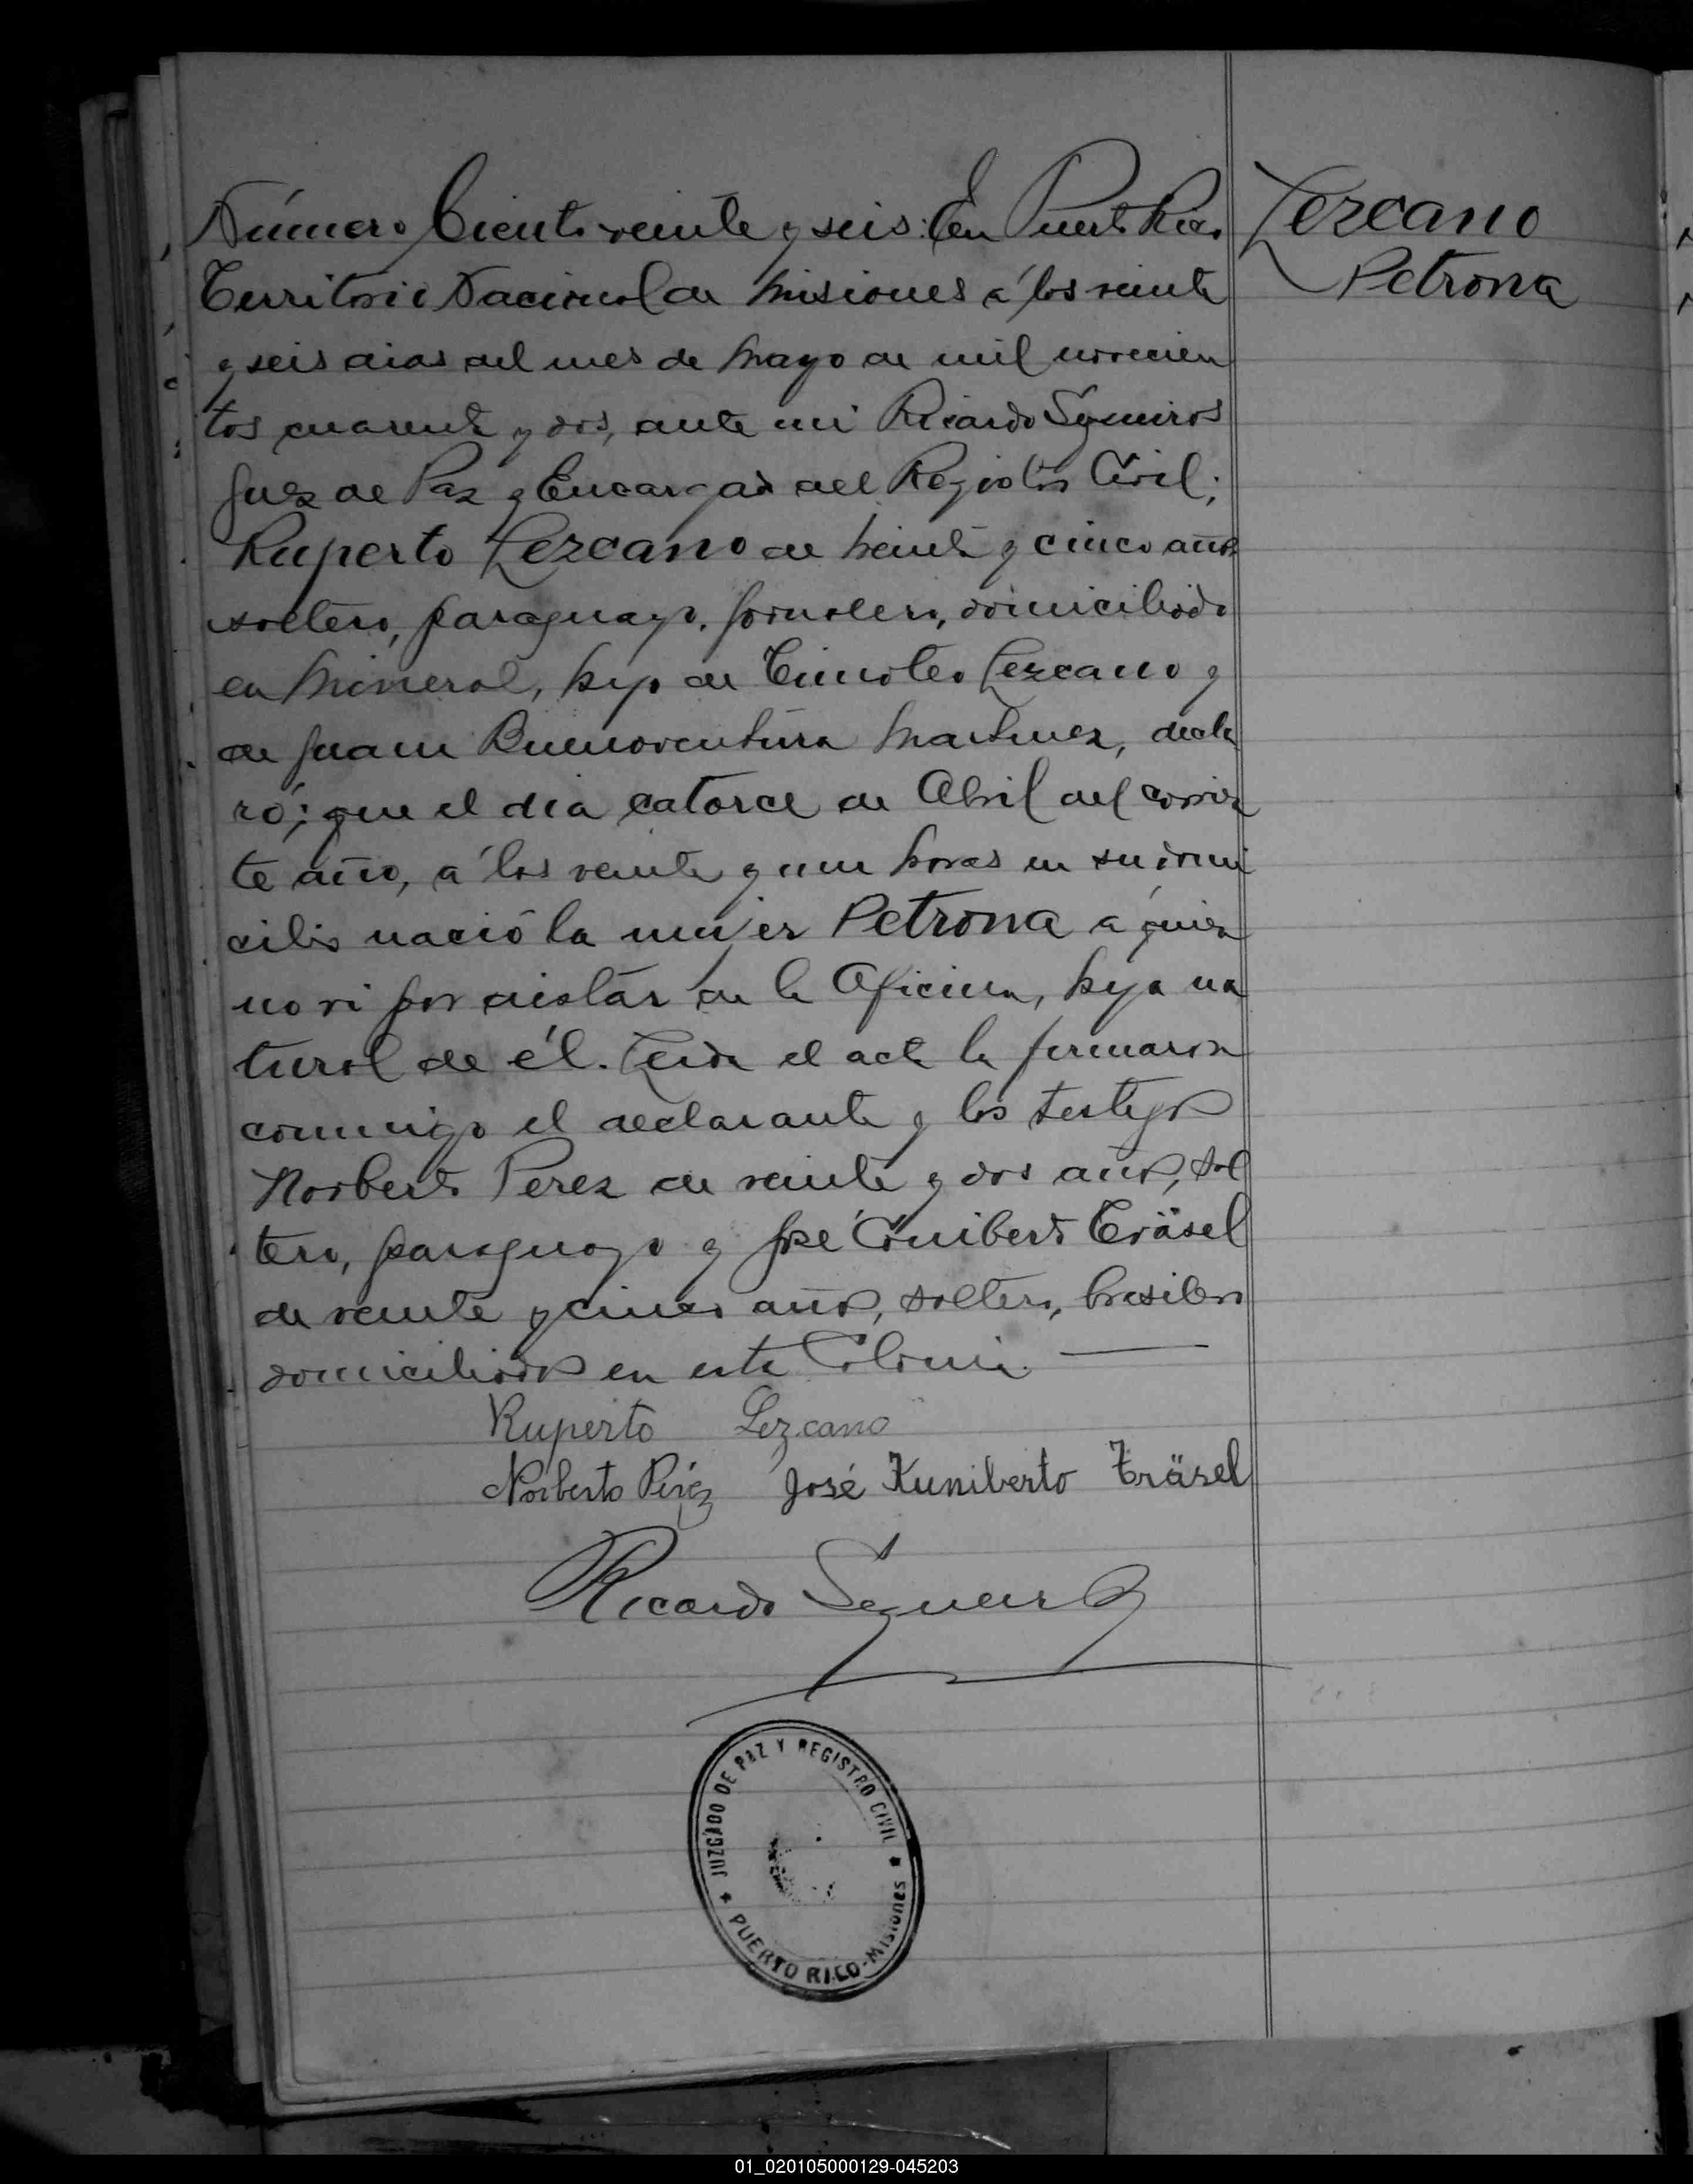 Número Ciento veinte y seis: En Puerto Rico
Territorio Nacional de Misiones á los veinte
y seis dias del mes de Mayo de mil novecien
tos cuarenta y dos, ante mi Ricardo Sequeiros
Juez de Paz y Encargado del Registro Civil;
Ruperto Lezcano de veinte y cinco años
soltero, paraguayo, jornalero, domiciliado
en Mineral, hijo de Timoteo Lezcano y
de Juana Buenaventura Martinez, decla
ró; que el dia catorce de Abril del corrien
te año, á las veinte y una horas en su domi
cilio nació la mujer Petrona á quien
no vi por distar de la Oficina, hija na
tural de él. Leida el acta la firmaron
conmigo el declarante y los testigos
Norberto Perez de veinte y dos años, sol
tero, paraguayo y José Cuniberto Träsel
de veinte y cinco años, soltero, brasilero
domiciliados en esta Colonia.
Ruperto Lezcano
Norberto Pérez José Kuniberto Träsel
Ricardo Sequeiros
Lezcano
Petrona
JUZGADO DE PAZ Y REGISTRO CIVIL
PUERTO RICO-MISIONES
01_020105000129-045203